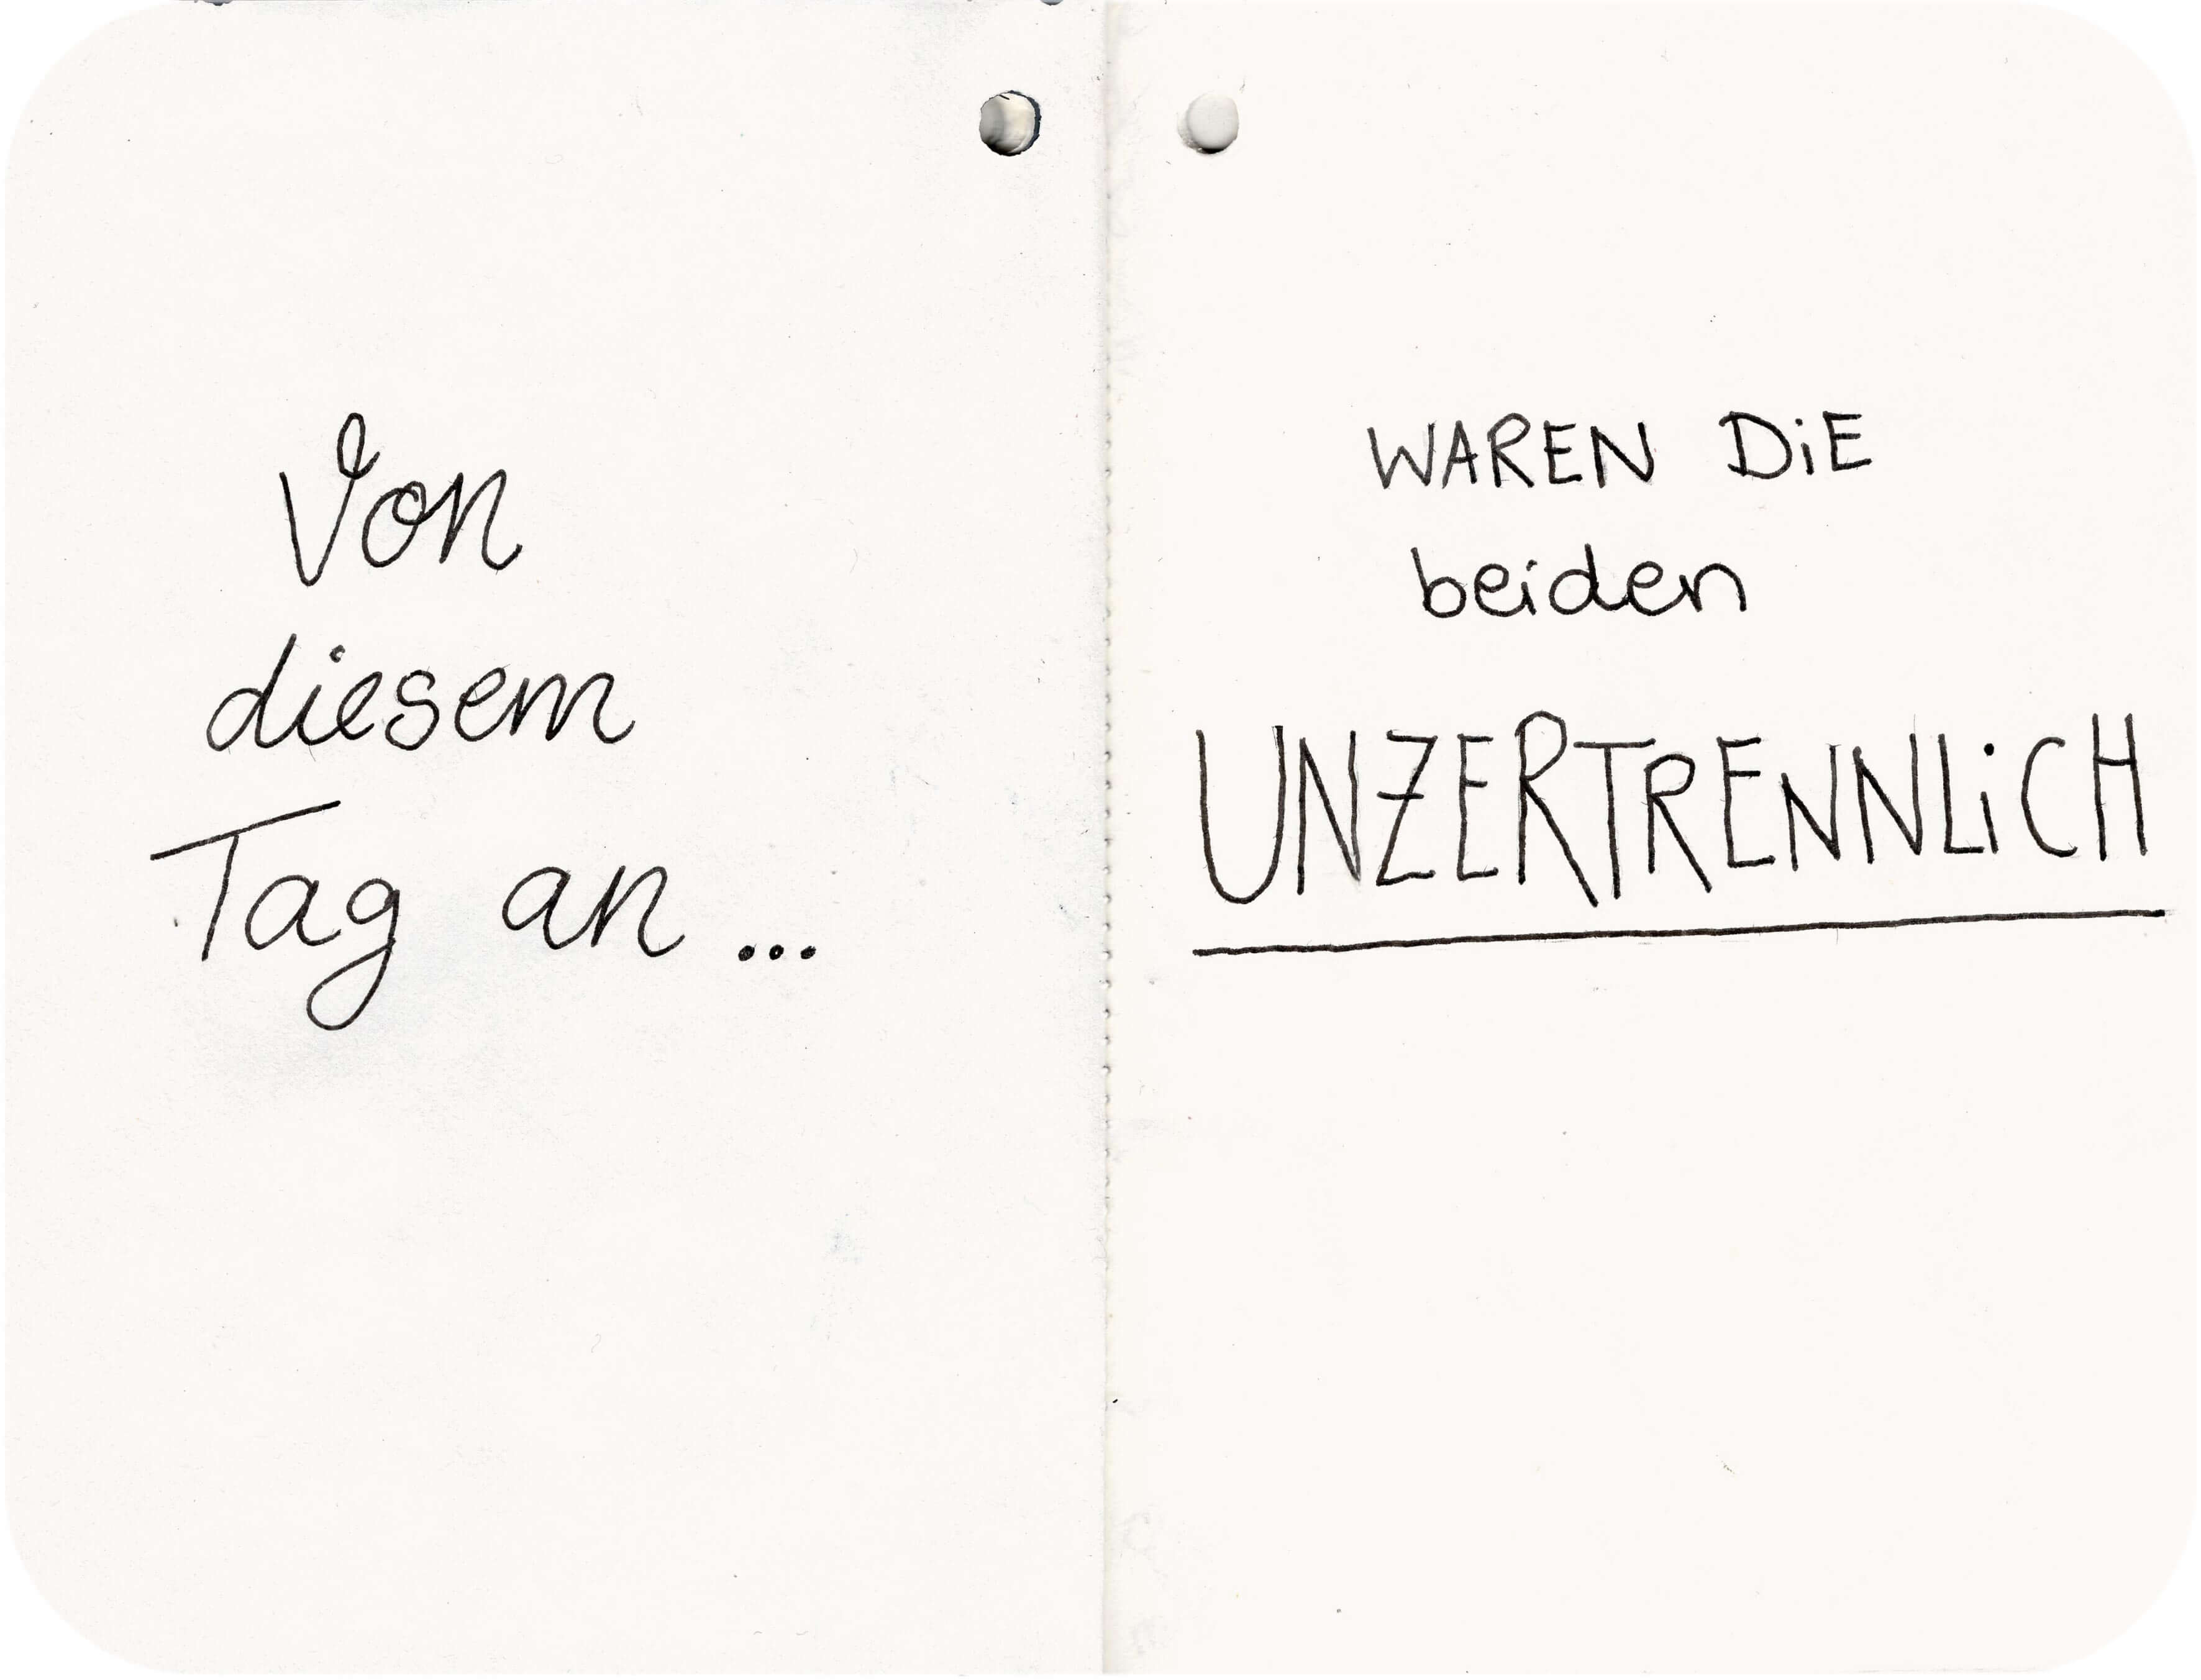 Von
diesem
Tag an ...
WAREN DiE
beiden
UNZERTRENNLiCH